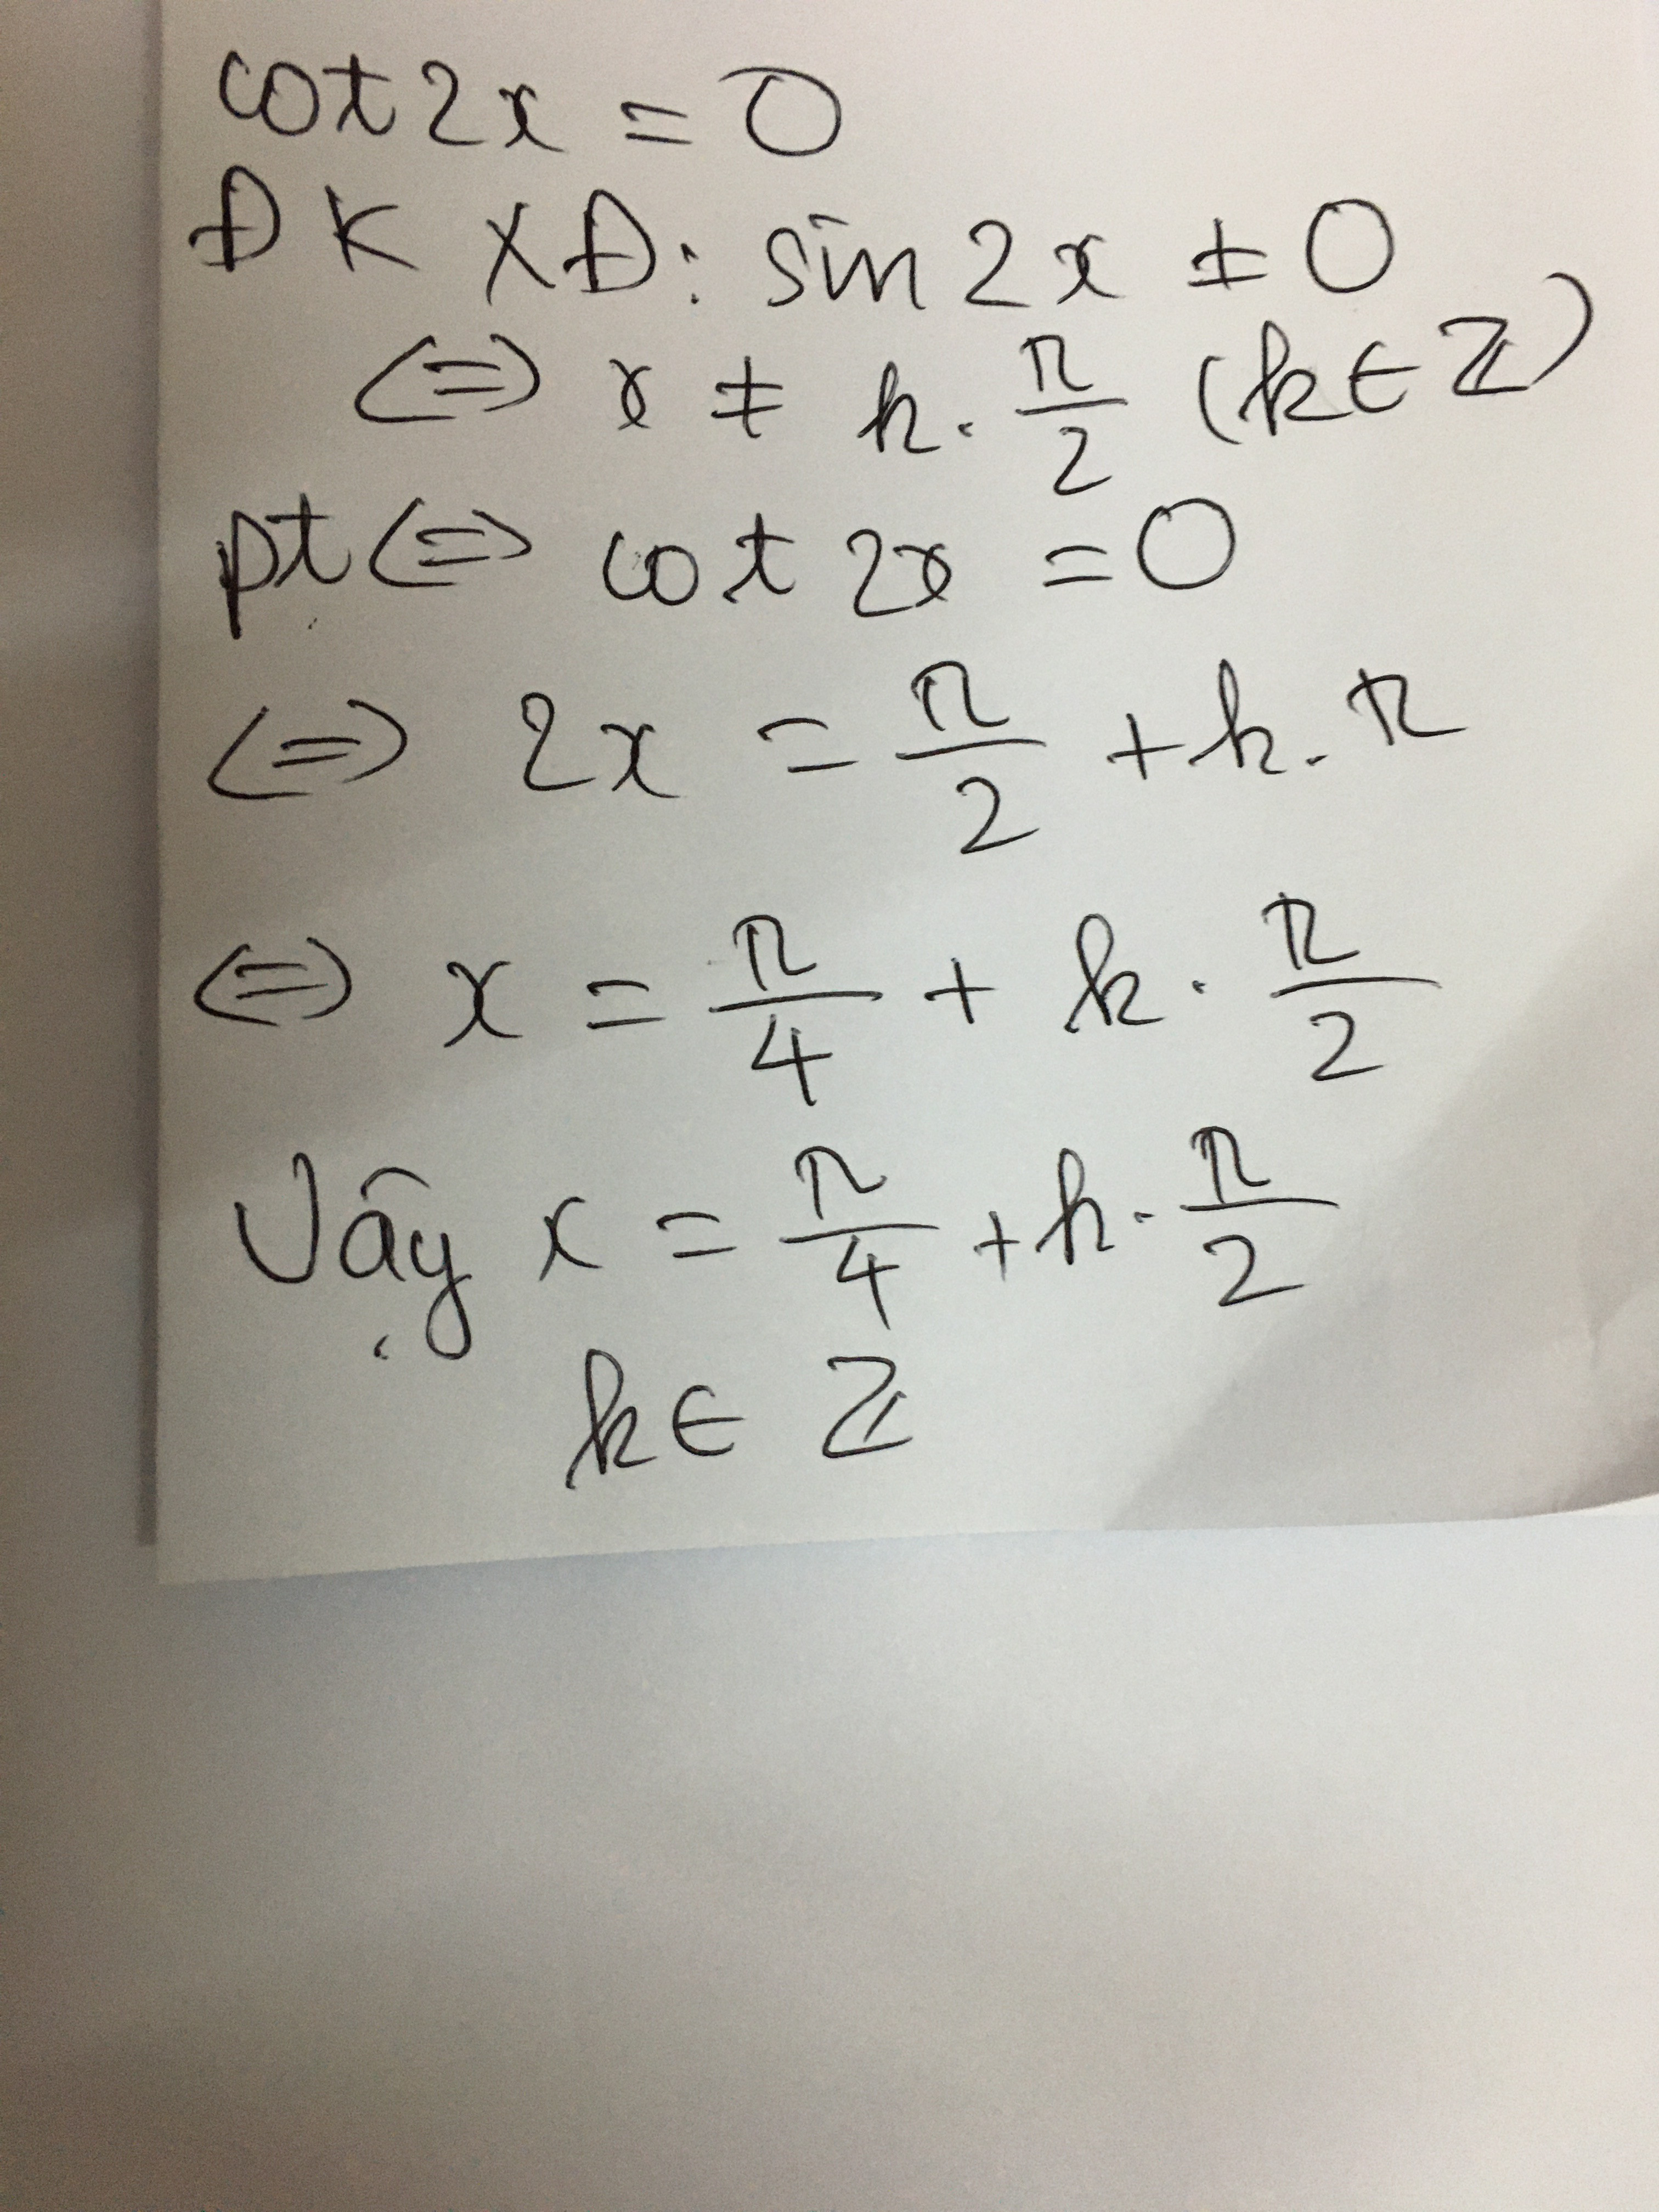 cot 2x = 0
ĐKXĐ: sin 2x ≠ 0
<=> x ≠ k.π/2 (k ∈ Z)
pt <=> cot 2x = 0
<=> 2x = π/2 + k.π
<=> x = π/4 + k.π/2
Vậy x = π/4 + k.π/2
k ∈ Z